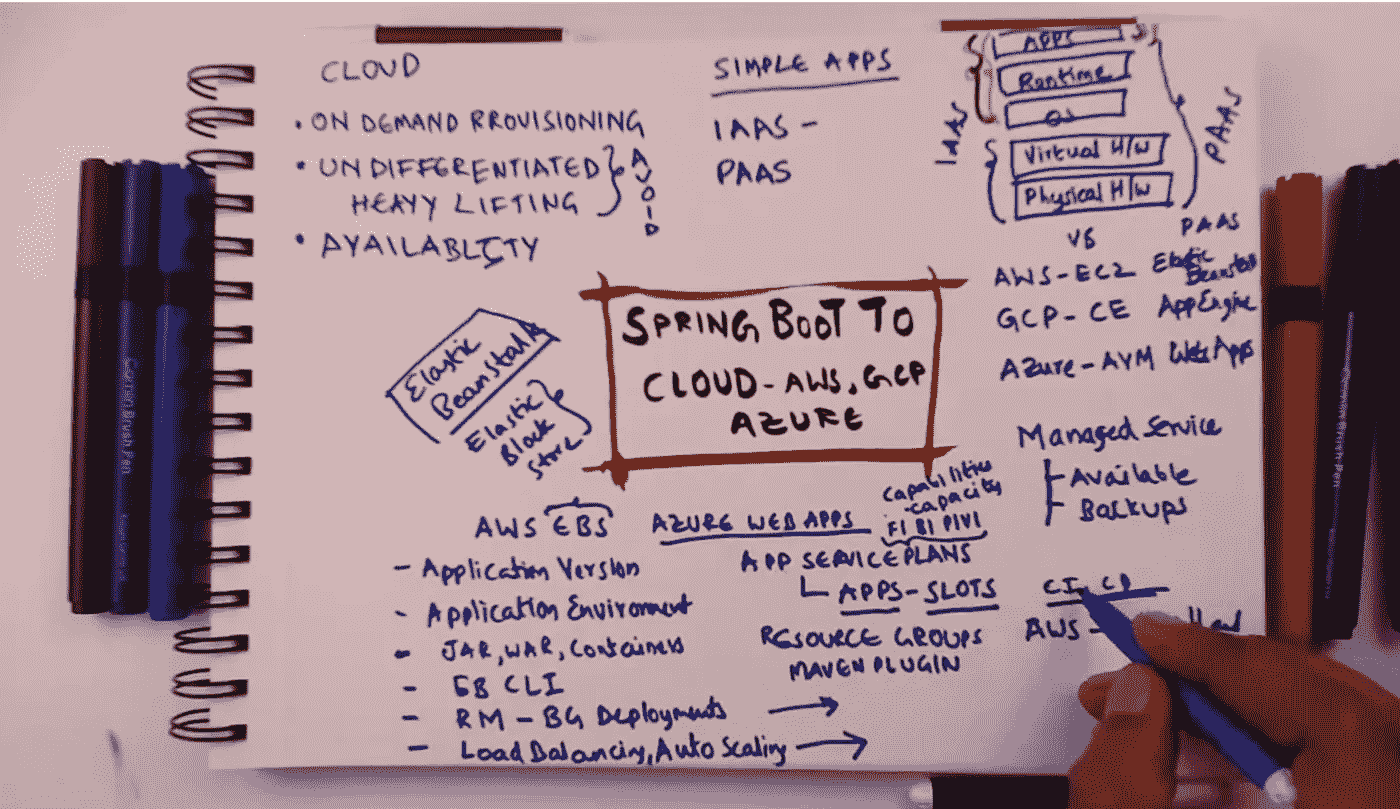 CLOUD
• ON DEMAND RROVISIONING
• UNDIFFERENTIATED
HEAVY LIFTING
AVOID
• AVAILABLITY
SIMPLE APPS
IAAS -
PAAS
APPS
Runtime
OS
Virtual H/W
Physical H/W
IAAS
PAAS
VS
PAAS
AWS-EC2 Elastic Beanstalk
GCP-CE AppEngine
AZure-AVM WebApps
SPRING BOOT TO
CLOUD-AWS, GCP
AZURE
Elastic
Beanstalk
Elastic
Block
Store
Managed Service
Available
Backups
AWS EBS
- Application Version
- Application Environment
- JAR, WAR, Containers
- EB CLI
- RM - BG Deployments
- Load Balancing, Auto Scaling
AZURE WEB APPS
Capabilities
-capacity
F1 B1 P1V1
APP SERVICE PLANS
APPS-SLOTS
RESOURCE GROUPS
MAVEN PLUGIN
CI CD
AWS -
Brush Pen